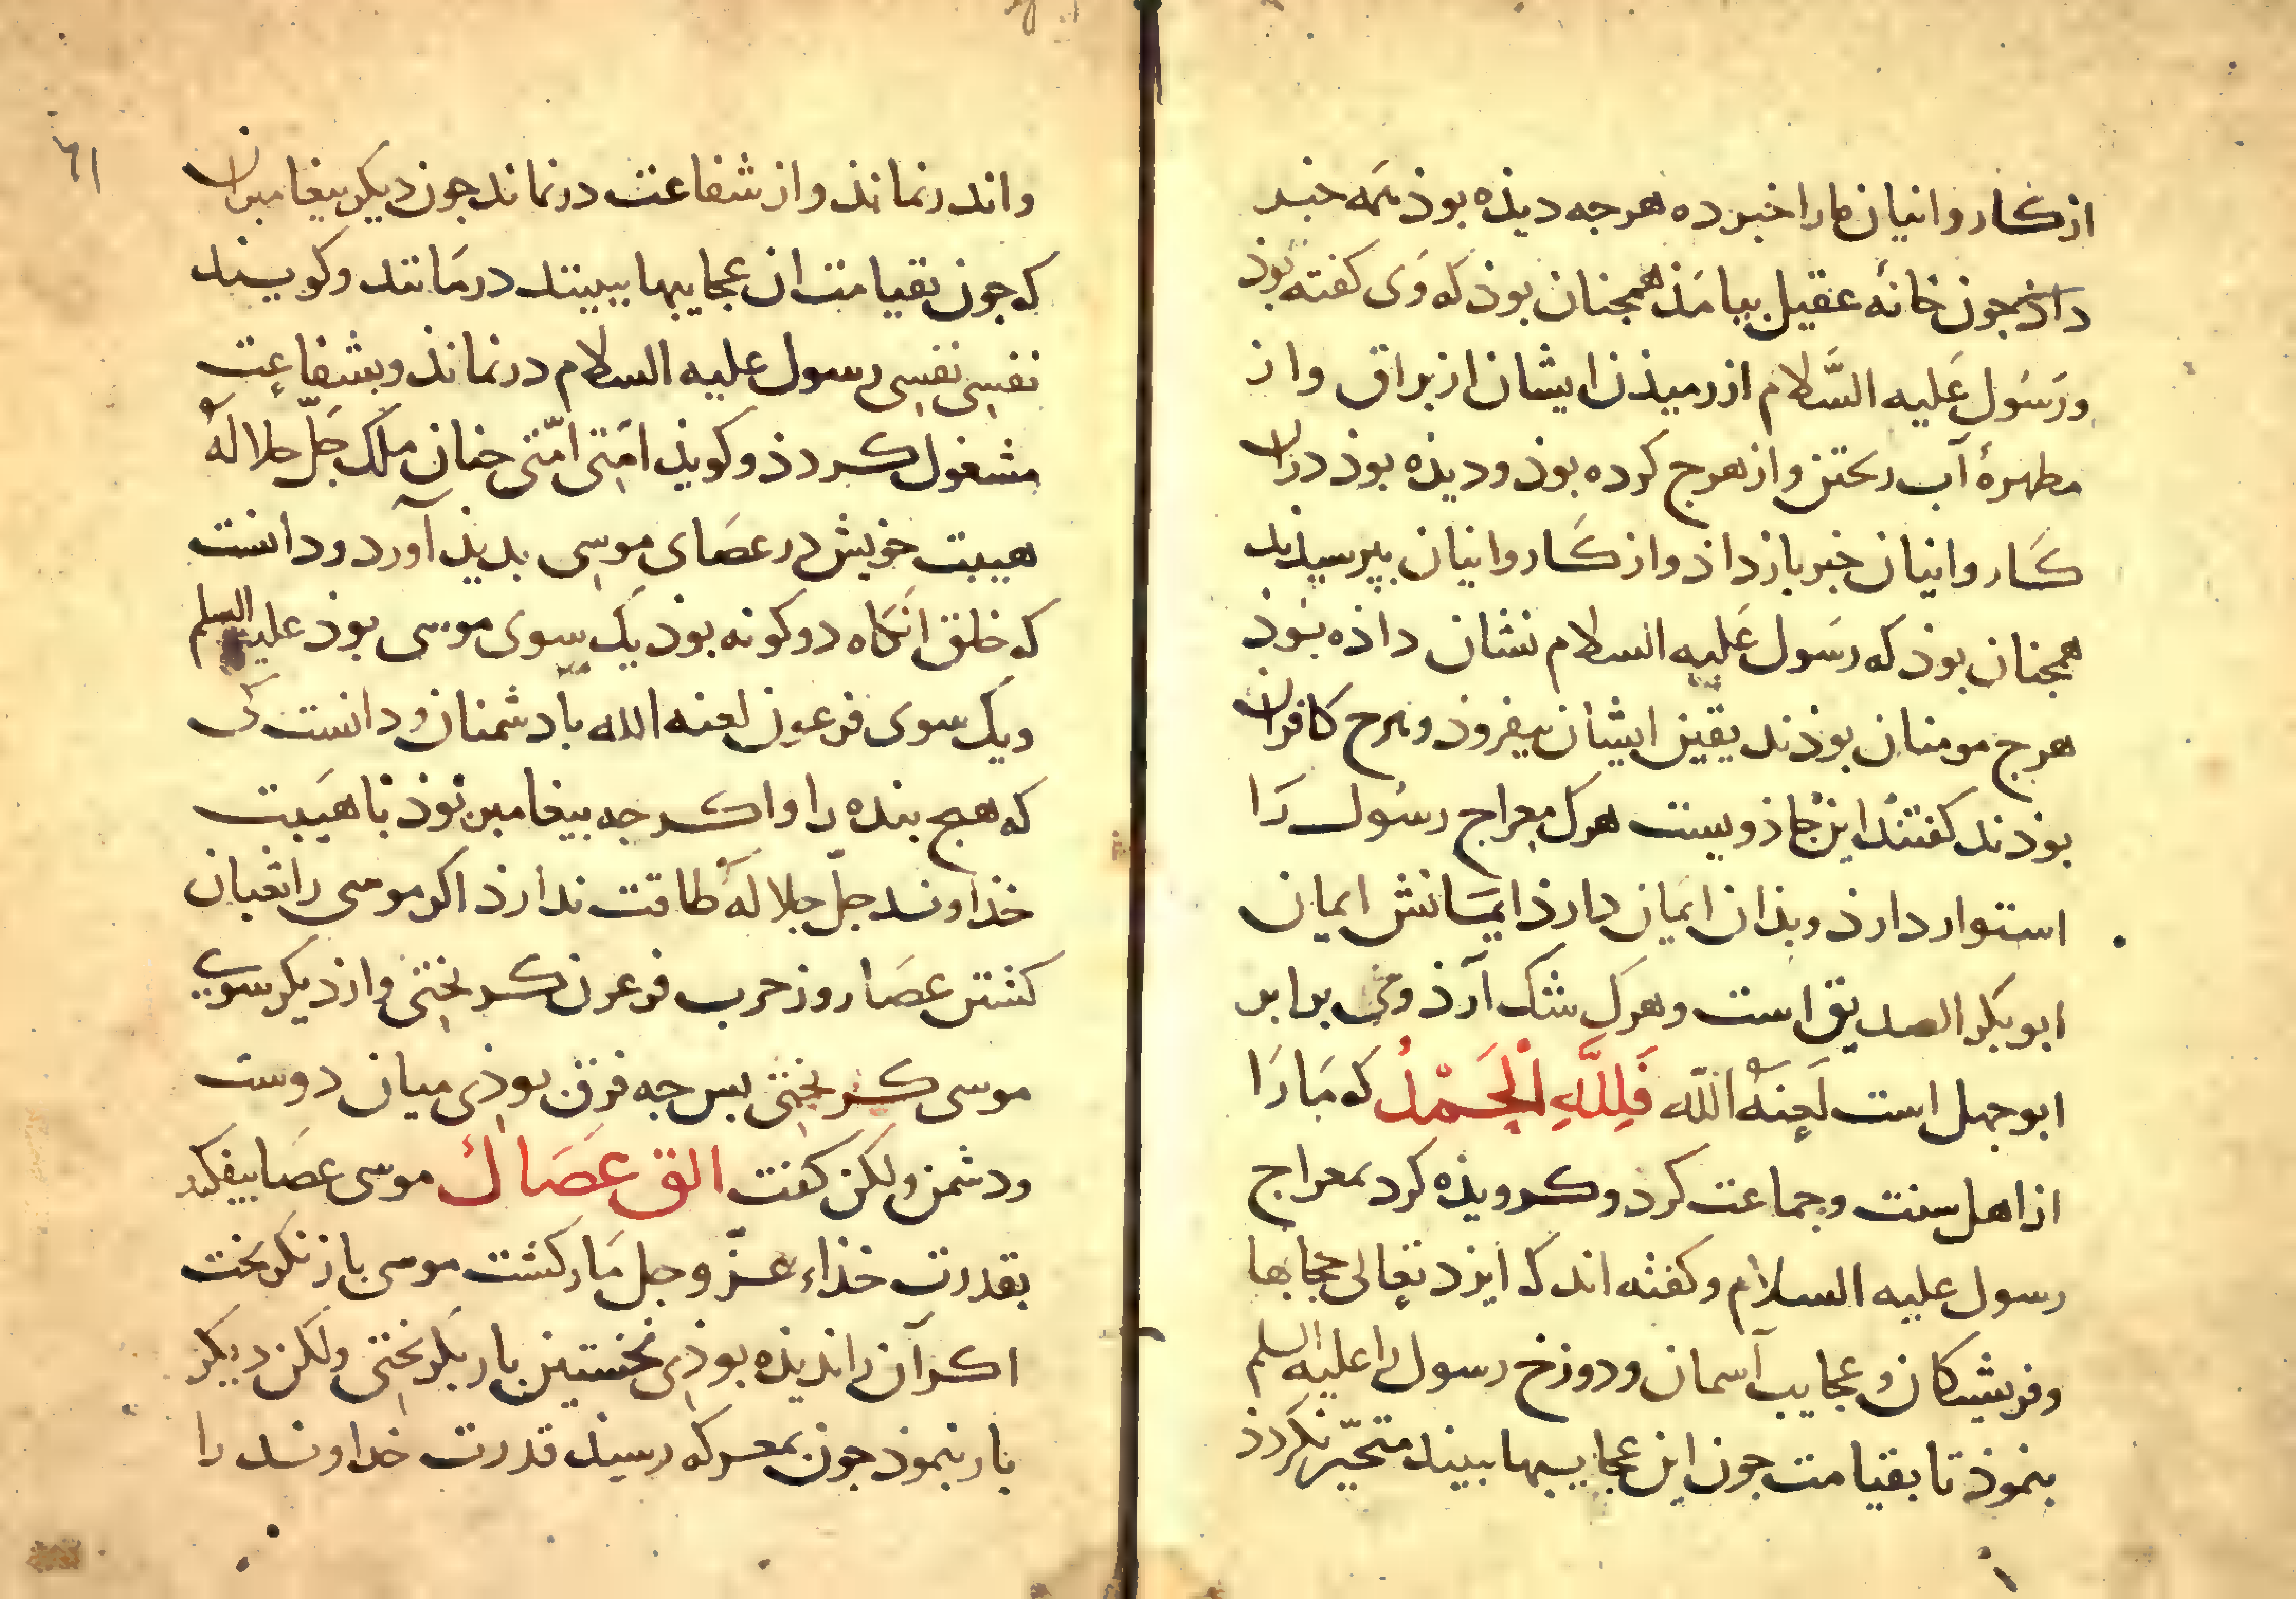 از کاروانیان ما را خبر ده هرجه دیذه بوذ همه خبر
داذ جون خانهٔ عقیل بیامذ همجنان بوذ که وی کفته بوذ
ورسول علیه السَّلام از رمیذن ایشان از براق واز
مطهرهٔ آب ریختن واز هرج کرده بوذ ودیذه بوذ دران
کاروانیان خبر باز داذ واز کاروانیان ببرسیذند
همجنان بوذ که رسول علیه السلام نشان داذه بوذ
هرج مومنان بوذند یقین ایشان بیفزوذ وهرج کافران
بوذند کفتند این جاذویست هرک معراج رسول را
استوار دارذ وبذان ایمان دارذ ایمانش ایمان
ابوبکر الصدیق است وهرک شک آرذ وی برابر
ابوجهل است لعنه الله فَلِلَّهِ الْحَمْدُ که مارا
از اهل سنت وجماعت کرد وکرویذه کرد بمعراج
رسول علیه السلام وکفته اند که ایزد تعالی حجابها
وفریشتکان وعجایب آسمان ودوزخ رسول را علیه السلم
بنموذ تا بقیامت جون این عجایبها بیند متحیّر نکردذ
۶۱
واندر نماند واز شفاعت درنماند جون دیکر بیغامبران
که جون بقیامت ان عجایبها ببینند درمانند وکویند
نفسی نفسی رسول علیه السلام درنماند وبشفاعت
مشغول کردذ وکویذ امّتی امّتی جنان ملک جَلّ جلالهُ
هیبت خویش در عصای موسی بدیذ آورد ودانست
که خلق انکاه دو کونه بوذ یک سوی موسی بوذ علیه السلم
ویک سوی فرعون لعنه الله با دشمنان ودانست کی
که هیج بنده را واکرجه بیغامبر بوذ با هیبت
خذاوند جلّ جلاله طاقت ندارذ اکر موسی را ثعبان
کشتن عصا روز حرب فرعون کریختی واز دیکر سوی
موسی کریختی بس جه فرق بوذی میان دوست
ودشمن ولکن کفت الق عَصَاك موسی عصا بیفکند
بقدرت خذاء عزّ وجل مار کشت موسی باز نکریخت
اکر آن را ندیذه بوذی نخستین بار بکریختی ولکن دیکر
بار بنموذ جون بمعرکه رسیذ قدرت خداوند را